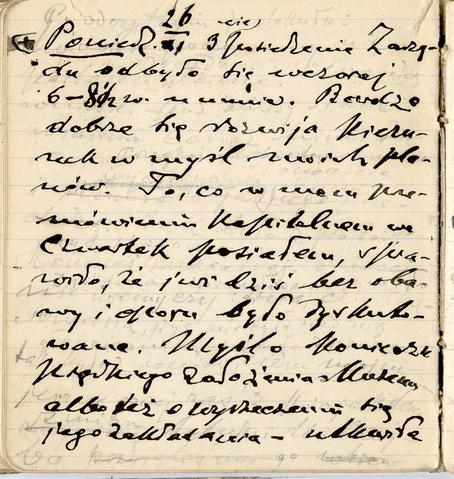 26
Poniedz. XI 3-cie posiedzenie Zarzą-
du odbyło się wczoraj
6–8½ w. u mnie. Bardzo
dobrze się rozwija kieru-
nek w myśl moich pla-
nów. To, co w mem prze-
mówieniu kapitalnem we
czwartek posiałem, spra-
wiło, że już dziś bez oba-
wy i oporu było dyskuto-
wane. Myśl o konieczn.
prędkiego założenia Muzeum
albo też o wyrzeczeniu się
jego zakładania – utkwiła